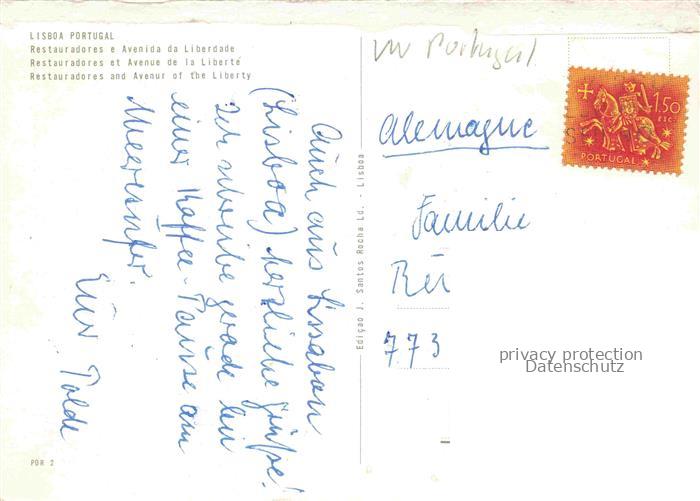 LISBOA PORTUGAL
Restauradores e Avenida da Liberdade
Restauradores et Avenue de la Liberté
Restauradores and Avenur of the Liberty
Auch aus Lissabon
(Lisboa) herzliche Grüße!
Ich schreibe gerade bei
einer Kaffee-Pause am
Meeresufer.
Euer Tolde
POR 2
Edição J. Santos Rocha Ld. - Lisboa
VW Portugal
1$50
ESC
PORTUGAL
Alemagne
Familie
773
privacy protection
Datenschutz